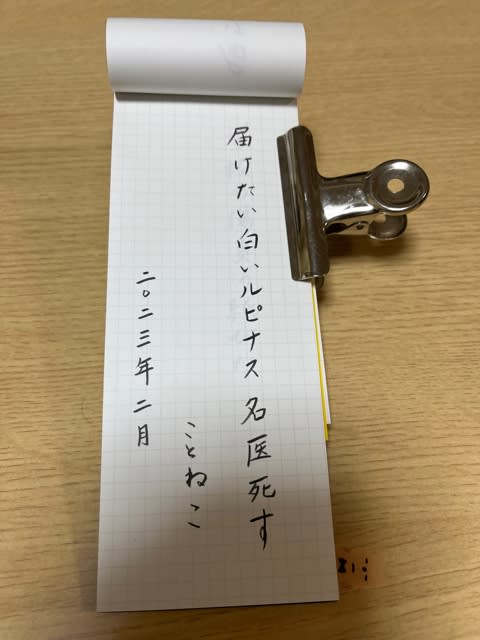 届けたい白いルピナス名医死す
ことねこ
二〇二三年二月